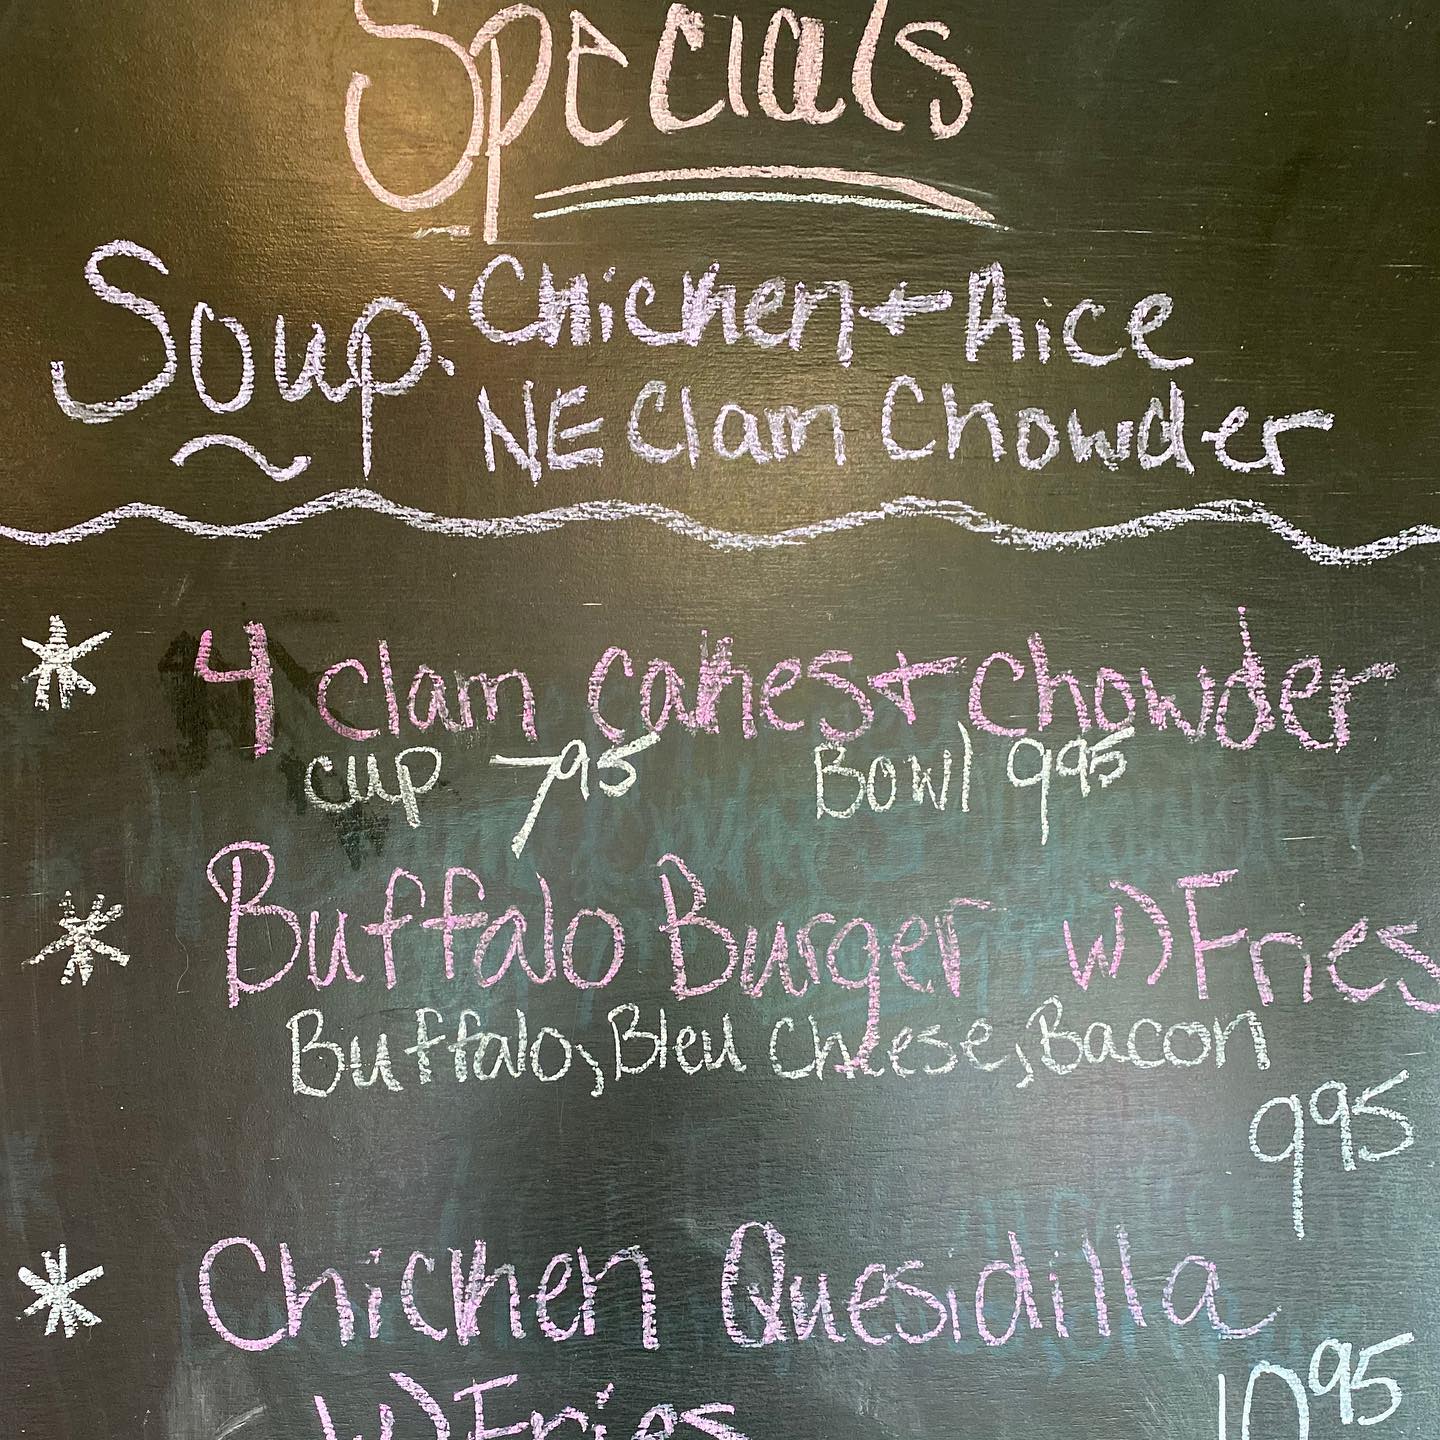 Specials
Soup: Chicken + Rice
NE Clam Chowder
* 4 clam cakes + chowder
cup 795 Bowl 995
* Buffalo Burger w) Fries
Buffalo, Bleu Cheese, Bacon
995
* Chicken Quesidilla
w) Fries 1095